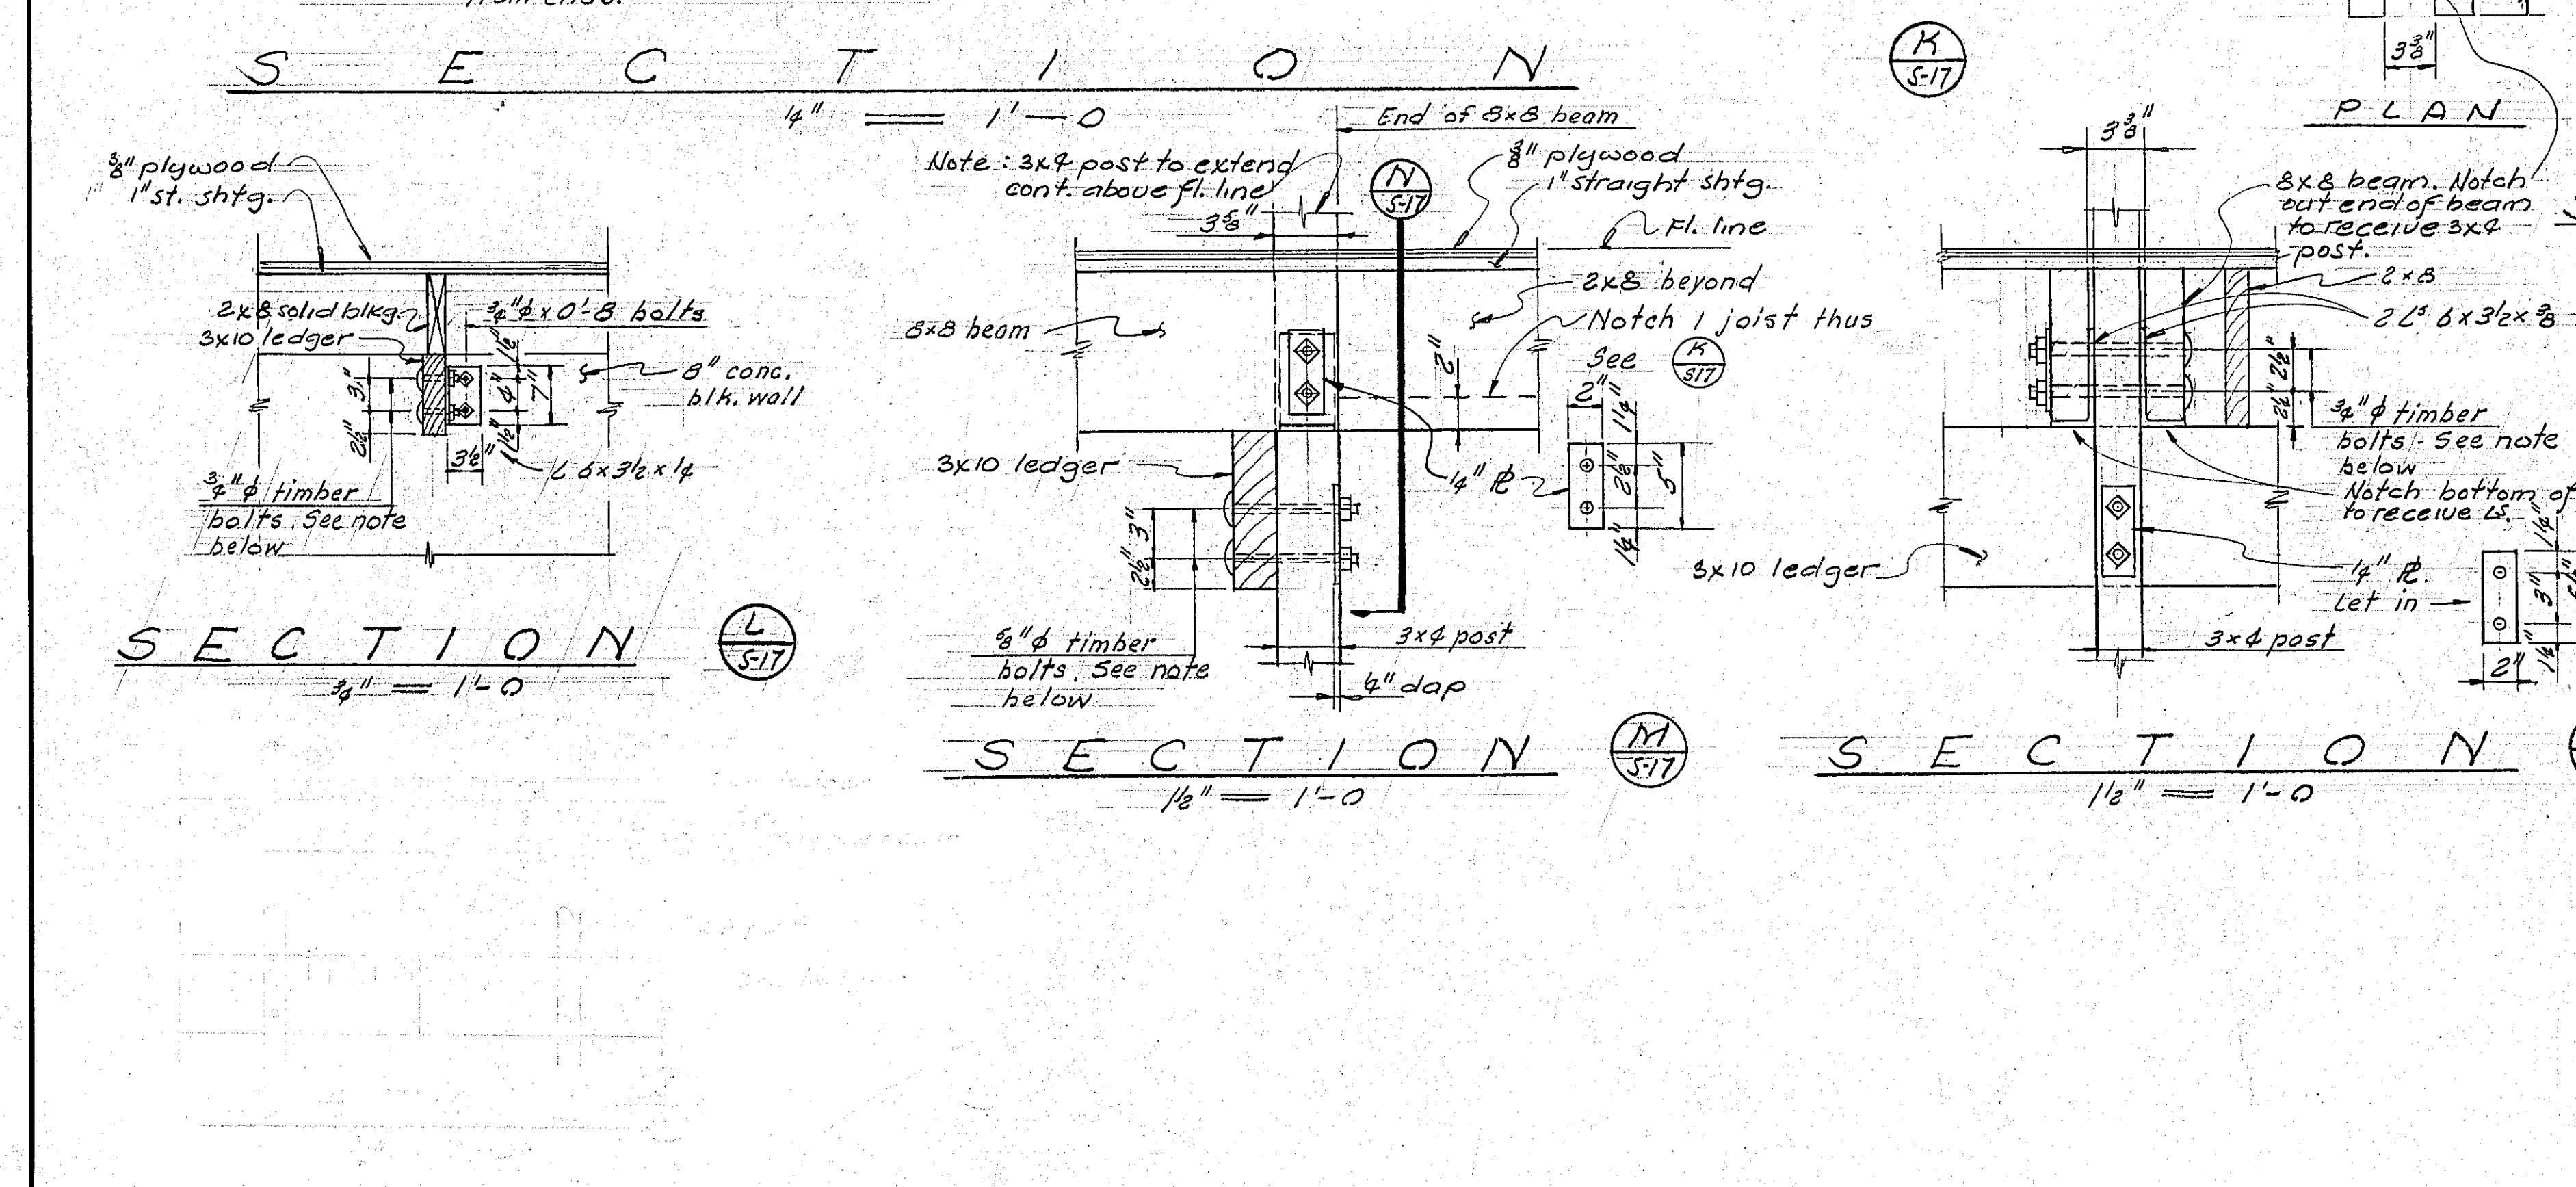 from ends.
SECTION
1/4" = 1'-0
K
S-17
3 3/8"
PLAN
3/8" plywood
1" st. shtg.
2x8 solid blkg.
3x10 ledger
3/4"φ x 0'-8 bolts
1 1/2"
4"
1 1/2"
7"
3"
2 1/2"
3 1/2"
8" conc.
blk. wall
L 6x3 1/2 x 1/4
3/4"φ timber
bolts. See note
below
SECTION
L
S-17
3/4" = 1'-0
End of 8x8 beam
Note: 3x4 post to extend
cont. above fl. line
3 5/8"
N
S-17
3/8" plywood
1" straight shtg.
Fl. line
2x8 beyond
Notch 1 joist thus
See
K
S17
8x8 beam
2"
3x10 ledger
1/4" ℄
2"
1 1/4"
2 1/2"
1 1/4"
5"
3"
2 1/2"
5/8"φ timber
bolts. See note
below
3x4 post
1/4" dap
SECTION
M
S-17
1 1/2" = 1'-0
3 3/8"
8x8 beam. Notch
out end of beam
to receive 3x4
post.
2x8
2 Ls 6x3 1/2 x 3/8
2 1/2"
2 1/2"
3/4"φ timber
bolts - See note
below
Notch bottom of
to receive Ls.
3x10 ledger
1/4" ℄.
Let in
1 1/4"
3"
1 1/4"
2"
3x4 post
SECTION
1 1/2" = 1'-0